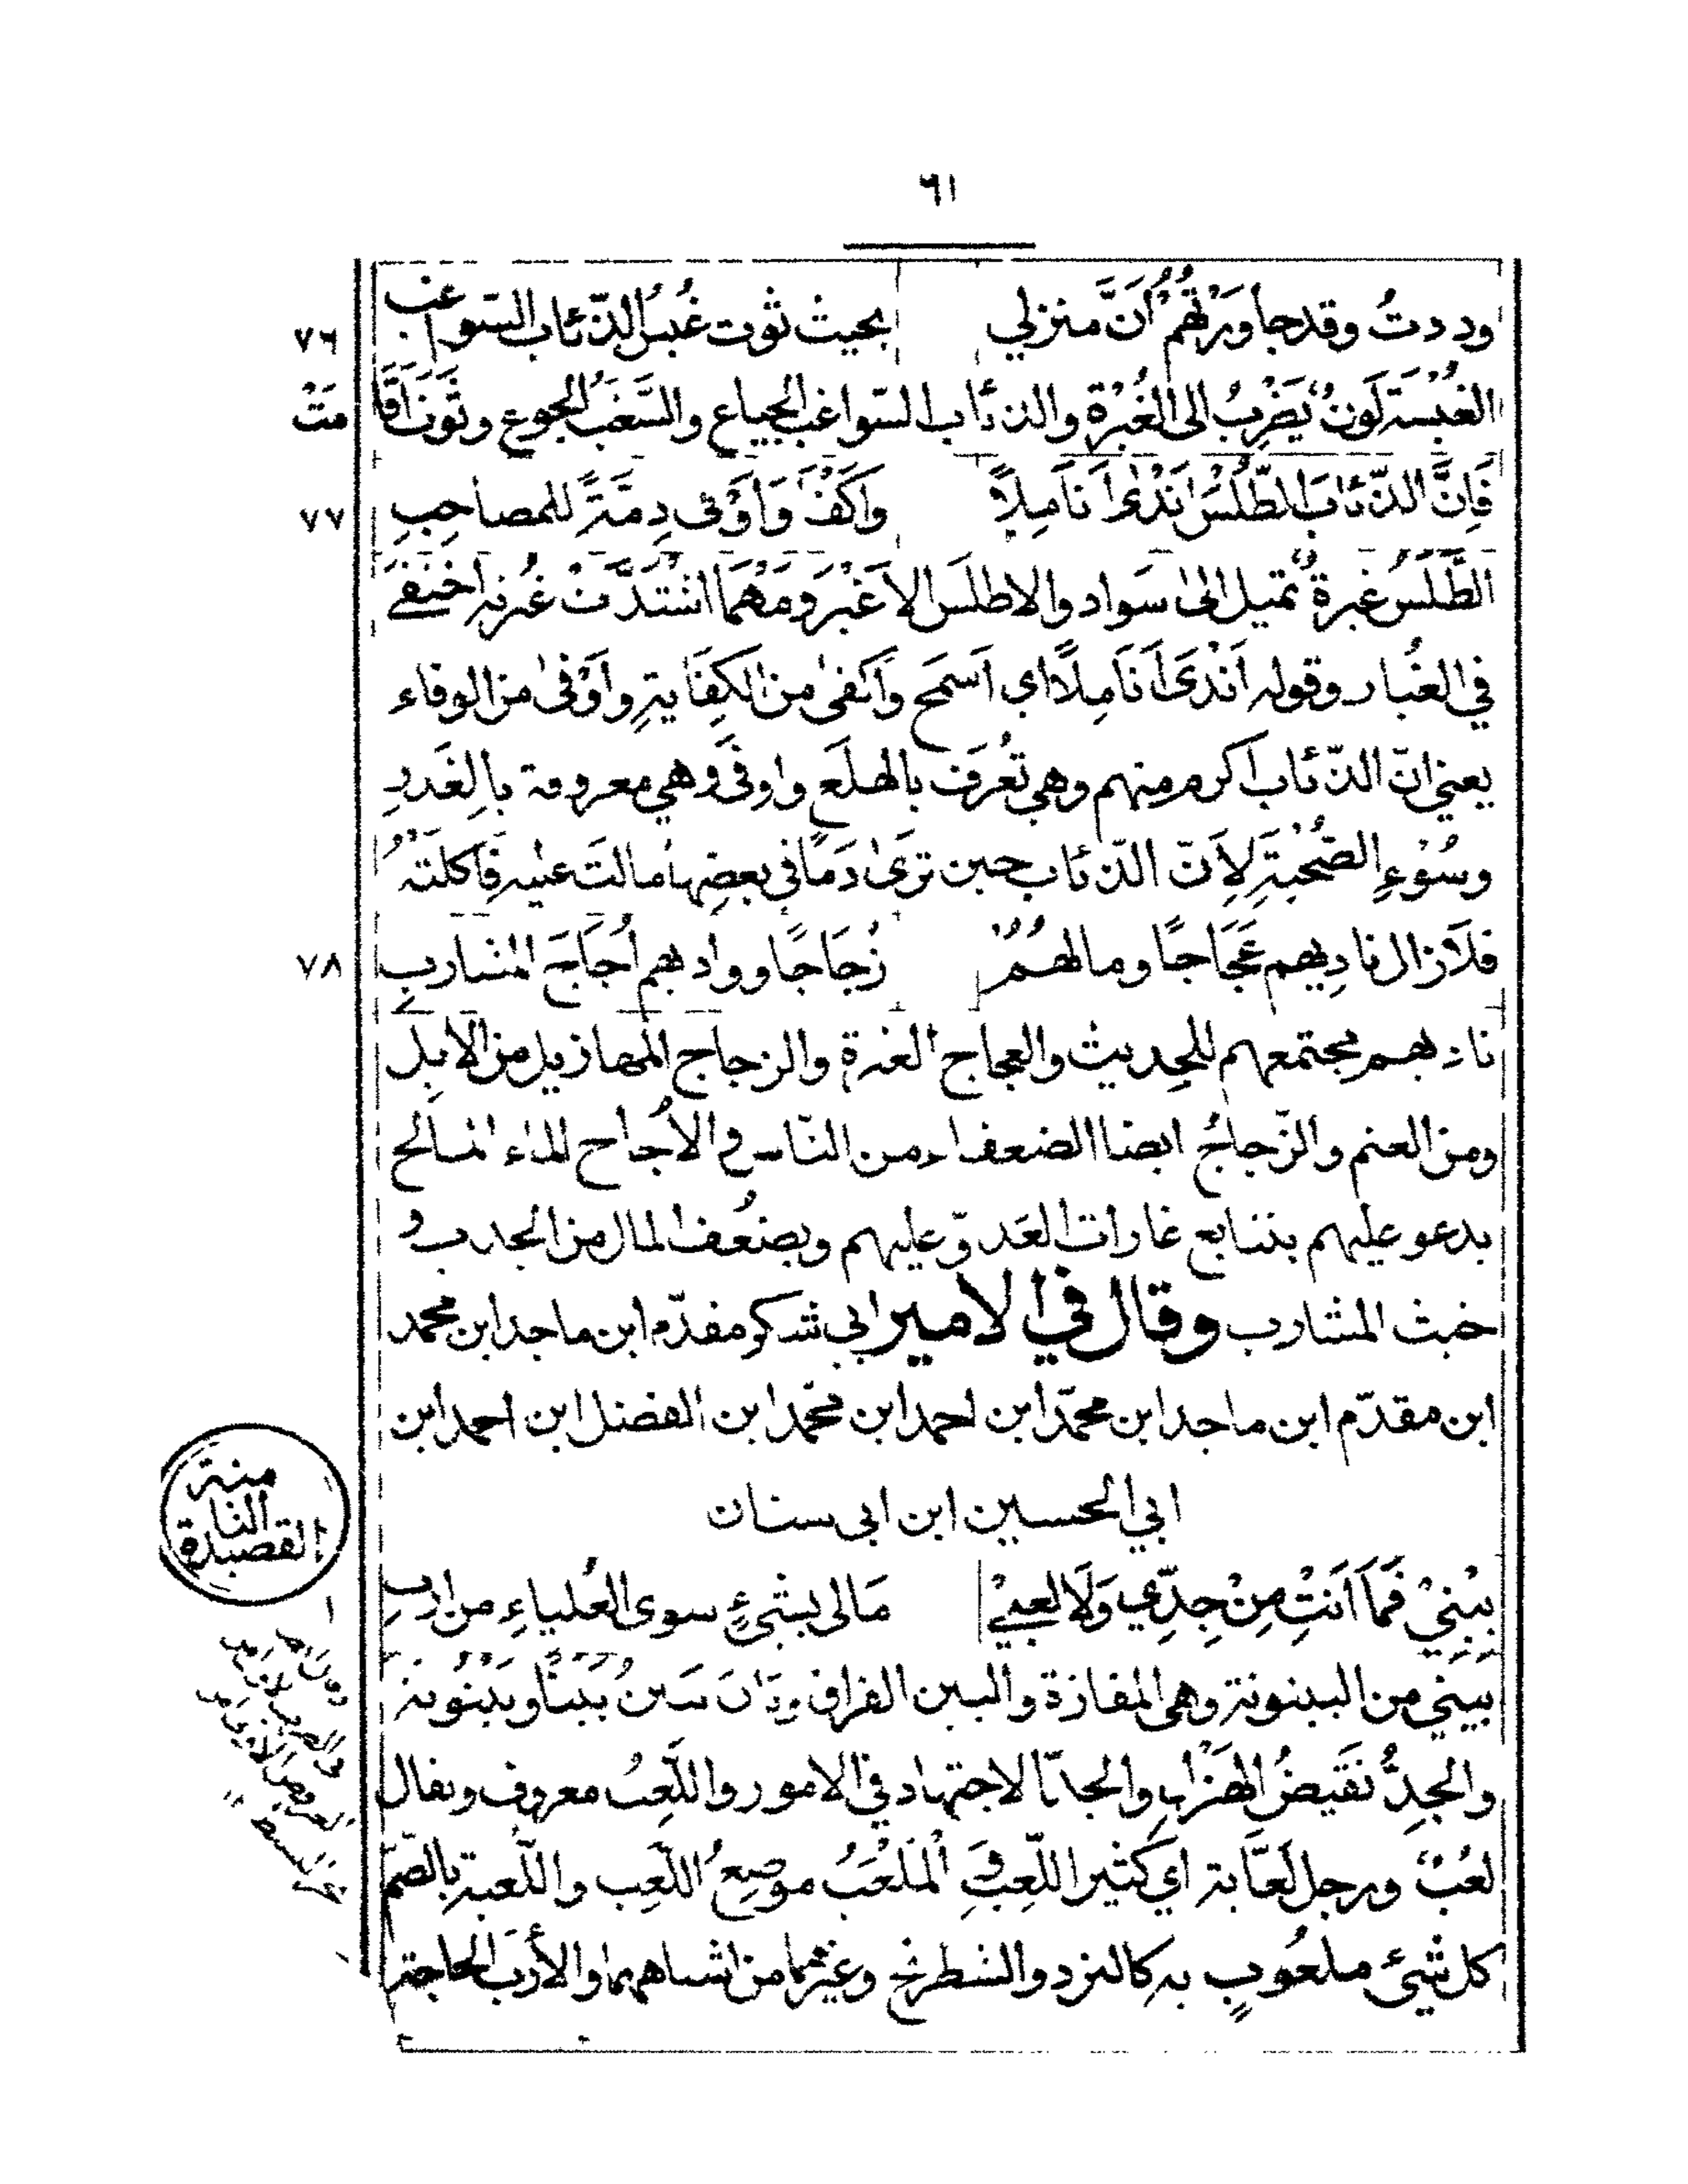 ٦١
وددتُ وقد جاورتُهُمْ أنَّ منزلي بحيث ثوت غُبسُ الذّئاب السّواغب ٧٦
الغُبْسَة لَونٌ يَضْرِبُ الى الغُبْرة والذئاب السّواغب الجياع والسَّغَبُ الجوع وثَوَتْ أقَامَتْ
فَإِنَّ الذّئابَ الطُّلْسَ أَنْدَىٰ أَنَامِلاً وَاَكفىٰ وَاَوْفى ذِمَّةً للمصاحِبِ ٧٧
الطَّلَسُ غبرةٌ تميل الىٰ سَواد والاطلَس الاَغْبَر ومَهْمَا اشتدَّتْ غُبرته اختفىٰ
في الغُبار وقوله اَنْدَىٰ اَنَامِلاً اي اَسمَح وَاَكفىٰ من الكِفَايةِ واَوْفىٰ من الوفاء
يعني انّ الذّئاب اكرم منهم وهي تُعرَف بالهلَع واوفىٰ وهي معروفة بالغَدرِ
وسُوْءِ الصُّحْبَةِ لِاَنّ الذّئاب حين ترَىٰ دَمًا في بعضِها مالَت عليه فَاكلَتْهُ
فلاَ زال ناديهم عَجَاجًا ومالهُمُ زُجَاجًا ووادِيهم اُجَاجَ المشاربِ ٧٨
ناديهم مجتمعهم للحديث والعجاج الغبرة والزجاج المهازيل من الابِل
ومن الغنم والزّجاجُ ايضا الضعفاء من النّاس والاُجاج الماء المالح
يدعو عليهم بتتابع غارات العَدوّ عليهم وبضُعف المال من الجدب و
خبث المشارب وقال في الامير ابي شكر مقدّم ابن ماجد ابن محمد
ابن مقدّم ابن ماجد ابن محمّد ابن احمد ابن محمّد ابن الفضل ابن احمد ابن
ابي الحسين ابن ابى سنان
القصيدة
بِيْنِيْ فَمَا اَنْتِ مِنْ جِدِّي وَلَا لعبيْ مَالى بشيءٍ سوى العُلياءِ من اربِ ١
بيني من البينونة وهى المفازة والبين الفراق بَيْنًا وبينُونة
والجِدُّ نَقيضُ الهَزْلِ والجدّ الاجتهاد في الامور واللَّعِبُ معروف ويقال
لعُبٌ ورجل لَعَّابة اي كثير اللّعِب وَ المَلْعَبُ موضِعُ اللّعِب واللّعبة بالضّمّ
كل شيء ملعُوبٍ بهِ كالنرد والشطرنج وغيرهما من اشباههما والأَرَب الحاجة